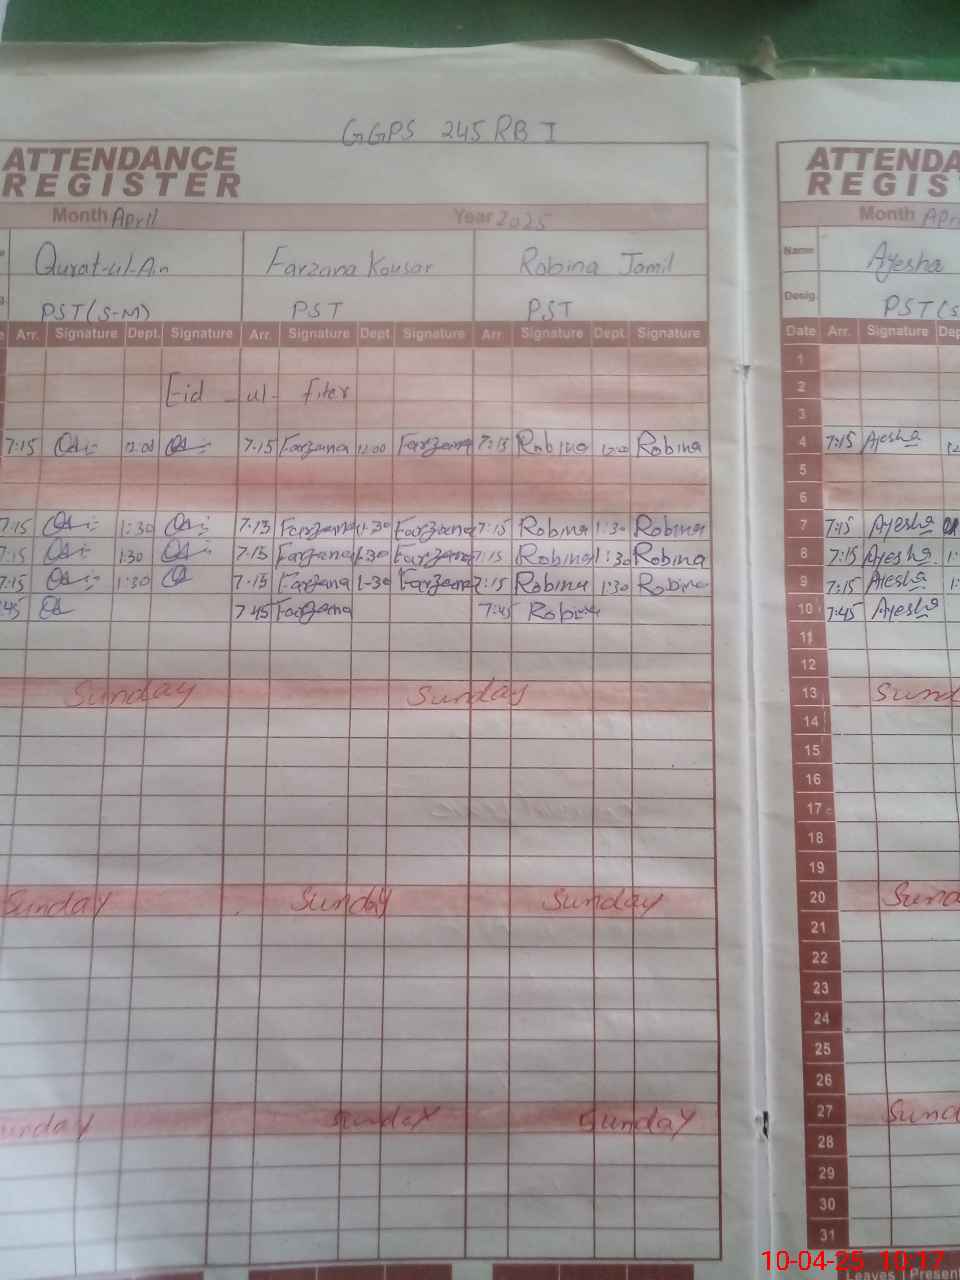 GGPS 245 RB I
ATTENDANCE REGISTER
Month April Year 2025
Qurat-ul-Ain Farzana Kousar Robina Jamil
PST(S-M) PST PST
Arr. Signature Dept. Signature Arr. Signature Dept Signature Arr. Signature Dept. Signature
Eid - ul - Fiter
7:15 12:00 7:15 Farzana 12:00 Farzana 7:15 Robina 12:00 Robina
7:15 1:30 7:15 Farzana 1:30 Farzana 7:15 Robina 1:30 Robina
7:15 1:30 7:15 Farzana 1:30 Farzana 7:15 Robina 1:30 Robina
7:15 1:30 7:15 Farzana 1-30 Farzana 7:15 Robina 1:30 Robina
7:45 Farzana 7:45 Robina
Sunday Sunday
Sunday Sunday Sunday
Sunday Sunday
ATTENDA
REGIS
Month
Name Ayesha
Desig. PST(S
Date Arr. Signature
1
2
3
4 7:15 Ayesha
5
6
7 7:15 Ayesha
8 7:15 Ayesha
9 7:15 Ayesha
10 7:45 Ayesha
11
12
13
14
15
16
17
18
19
20
21
22
23
24
25
26
27
28
29
30
31
Leaves Present
10-04-25 10:17